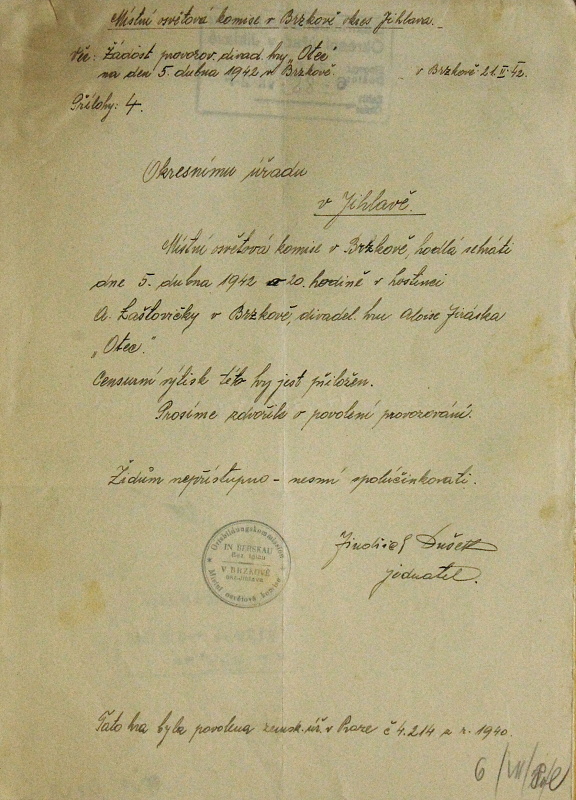 Místní osvětová komise v Brzkově okres Jihlava.
Věc: Žádost provozov. divad. hry „Otec“
na den 5. dubna 1942 v Brzkově.
v Brzkově 21. II. 42.
Přílohy: 4.
Okresnímu úřadu
v Jihlavě.
Místní osvětová komise v Brzkově, hodlá sehráti
dne 5. dubna 1942 o 20. hodině v hostinci
A. Laštovičky v Brzkově, divadel. hru Aloise Jiráska
„Otec.“
Censurní výtisk této hry jest přiložen.
Prosíme zdvořile o povolení provozování.
Židům nepřístupno - nesmí spolúčinkovati.
Jindřich Dušek
jednatel.
Ortsbildungskommission
IN BERSKAU
Bez. Iglau
V BRZKOVĚ
okr. Jihlava
Místní osvětová komise
Tato hra byla povolena zemsk. úř. v Praze č 4.214 z r. 1940.
6/VII/